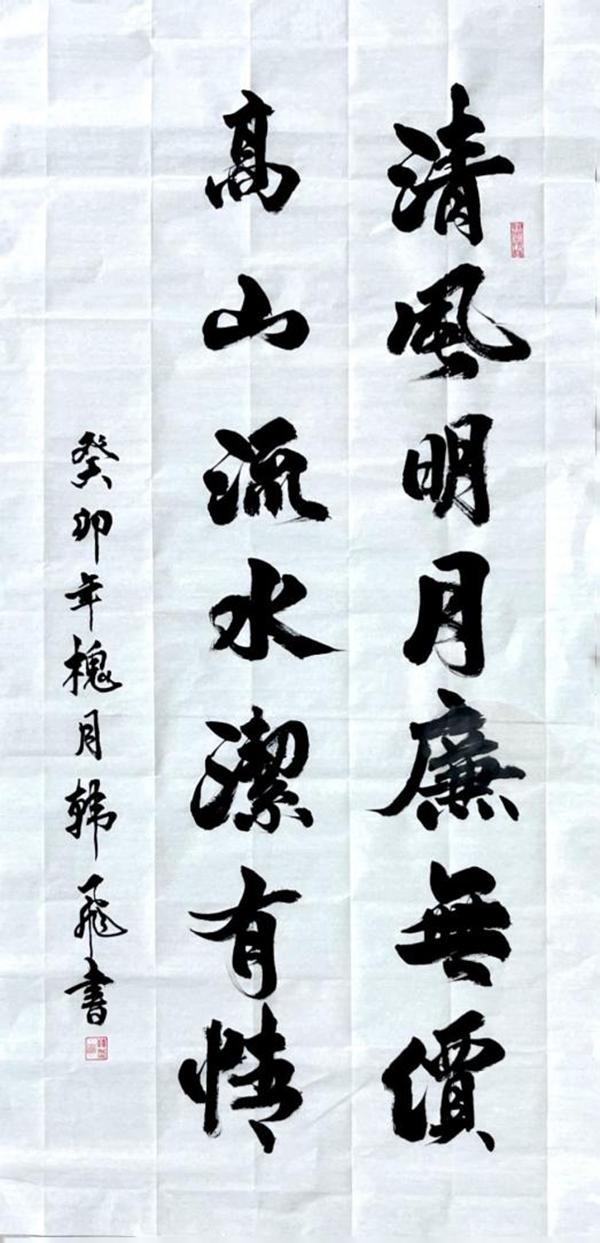 清風明月廉無價
高山流水潔有情
癸卯年槐月韩飛書